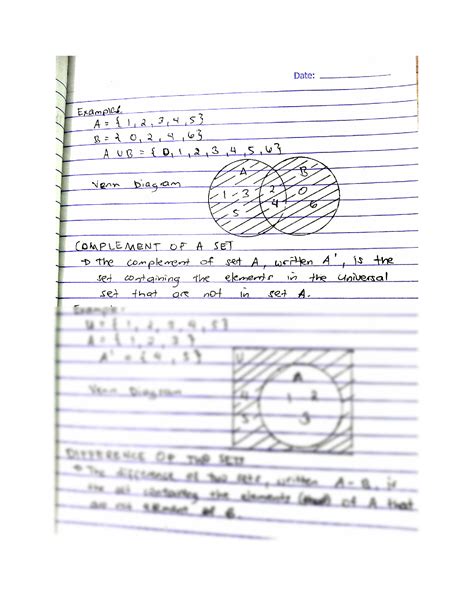 Date:
Examples
A = { 1, 2, 3, 4, 5}
B = { 0, 2, 4, 6}
A U B = { 0, 1, 2, 3, 4, 5, 6}
Venn Diagram
A
B
1 3 2 0
5 4 6
COMPLEMENT OF A SET
The complement of set A, written A', is the
set containing the elements in the universal
set that are not in set A.
Example:
U = { 1, 2, 3, 4, 5}
A = { 1, 2, 3 }
A' = { 4, 5}
Venn Diagram
U
A
4 1 2
5 3
DIFFERENCE OF TWO SETS
The difference of two sets, written A - B, is
the set containing the elements of A that
are not of B.